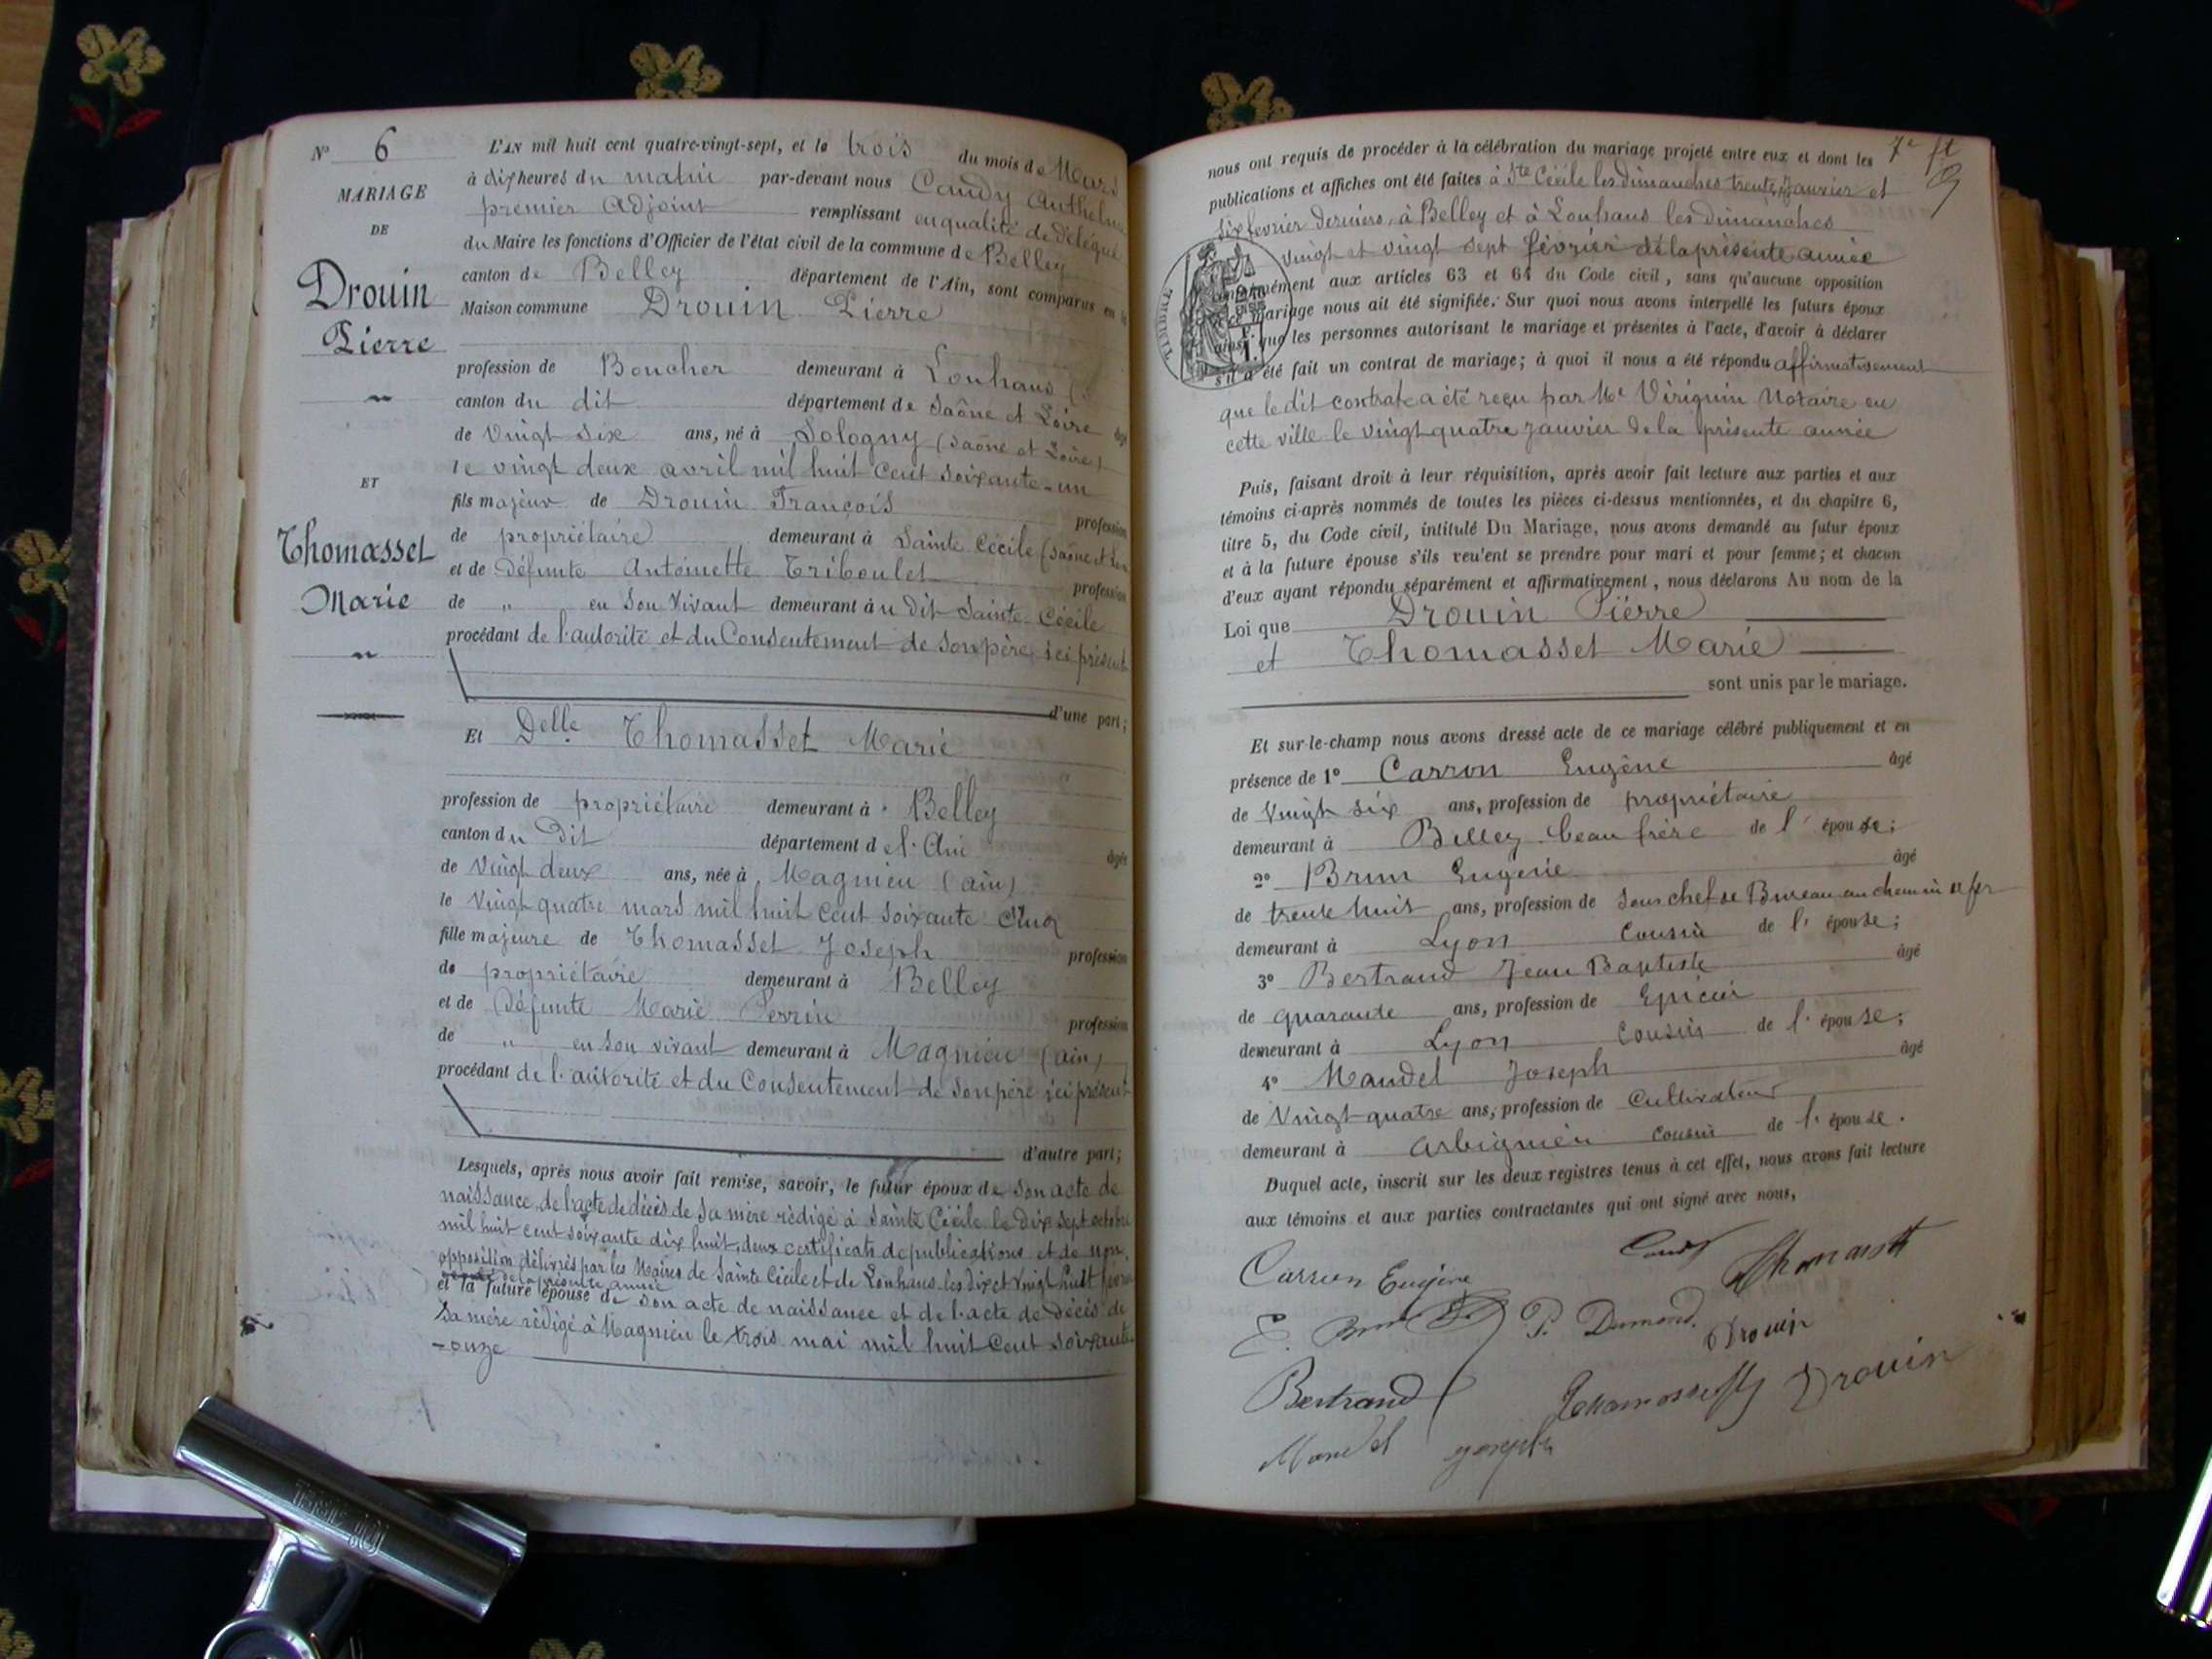 N° 6
MARIAGE
DE
Drouin
Pierre
ET
Thomasset
Marie
L'AN mil huit cent quatre-vingt-sept, et le trois du mois de Mars
à dix heures du matin par-devant nous Candy Anthelme
premier Adjoint remplissant en qualité de délégué
du Maire les fonctions d'Officier de l'état civil de la commune de Belley
canton de Belley département de l'Ain, sont comparus en la
Maison commune Drouin Pierre
profession de Boucher demeurant à Louhans
canton du dit département de Saône et Loire âgé
de Vingt six ans, né à Sologny (Saône et Loire)
le vingt deux avril mil huit cent soixante-un
fils majeur de Drouin François profession
de propriétaire demeurant à Sainte Cécile (Saône et Loire
et de défunte Antoinette Triboulet profession
de " en son vivant demeurant à u dit Sainte Cécile
procédant de l'autorité et du Consentement de son père ici présent
d'une part;
Et Delle Thomasset Marie
profession de propriétaire demeurant à Belley
canton du Dit département de l'Ain âgée
de Vingt deux ans, née à Magnieu (ain)
le Vingt quatre mars mil huit cent soixante cinq
fille majeure de Thomasset Joseph profession
de propriétaire demeurant à Belley
et de défunte Marie Perrin profession
de " en son vivant demeurant à Magnieu (ain)
procédant de l'autorité et du Consentement de son père ici présent
d'autre part;
Lesquels, après nous avoir fait remise, savoir, le futur époux de son acte de
naissance, de l'acte de décès de sa mère rédigé à Sainte Cécile le dix sept octobre
mil huit cent soixante dix huit, deux certificats de publications et de non
opposition délivrés par les Maires de Sainte Cécile et de Louhans les dix et vingt huit février
de la présente année
et la future épouse de son acte de naissance et de l'acte de décès de
sa mère rédigé à Magnieu le trois mai mil huit cent soixante
-onze
nous ont requis de procéder à la célébration du mariage projeté entre eux et dont les
publications et affiches ont été faites à Ste Cécile les dimanches trente Janvier et
six fevrier derniers, à Belley et à Louhans les dimanches
vingt et vingt sept février de la présente année
conformément aux articles 63 et 64 du Code civil, sans qu'aucune opposition
à ce mariage nous ait été signifiée. Sur quoi nous avons interpellé les futurs époux
ainsi que les personnes autorisant le mariage et présentes à l'acte, d'avoir à déclarer
s'il a été fait un contrat de mariage; à quoi il nous a été répondu affirmativement
que le dit contrat a été reçu par Me Viriguin Notaire en
cette ville le vingt quatre Janvier de la présente année
TIMBRE
Puis, faisant droit à leur réquisition, après avoir fait lecture aux parties et aux
témoins ci-après nommés de toutes les pièces ci-dessus mentionnées, et du chapitre 6,
titre 5, du Code civil, intitulé Du Mariage, nous avons demandé au futur époux
et à la future épouse s'ils veulent se prendre pour mari et pour femme; et chacun
d'eux ayant répondu séparément et affirmativement, nous déclarons Au nom de la
Loi que Drouin Pierre
et Thomasset Marie
sont unis par le mariage.
Et sur-le-champ nous avons dressé acte de ce mariage célébré publiquement et en
présence de 1° Carron Eugène âgé
de Vingt six ans, profession de propriétaire
demeurant à Belley beau frère de l'épouse;
2° Brun Eugénie âgé
de trente huit ans, profession de Sous chef de Bureau au chemin de fer
demeurant à Lyon Cousin de l'épouse;
3° Bertrand Jean Baptiste âgé
de quarante ans, profession de Epicier
demeurant à Lyon Cousin de l'épouse;
4° Mandel Joseph âgé
de Vingt-quatre ans, profession de Cultivateur
demeurant à Arbignieu cousin de l'épouse.
Duquel acte, inscrit sur les deux registres tenus à cet effet, nous avons fait lecture
aux témoins et aux parties contractantes qui ont signé avec nous,
Carron Eugène Candy Thomasset
E. Brun P. Dumond Drouin
Bertrand Thomasset Drouin
Mandel joseph